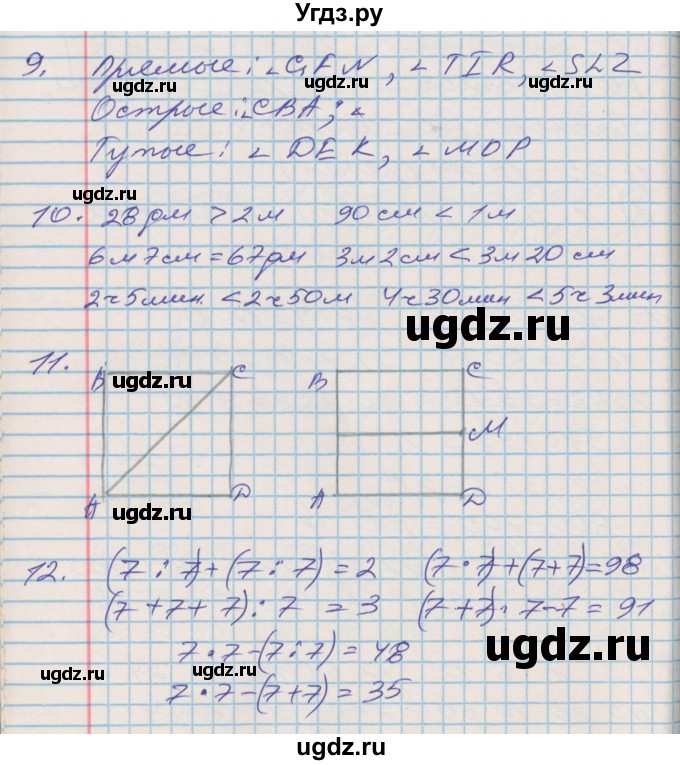 Угдз.ру
9. Прямые: ∠GFN, ∠TIR, ∠SLZ
ugdz.ru ugdz.ru
Острые: ∠CBA; ∠
Тупые: ∠DEK, ∠MOP
ugdz.ru
10. 28 дм > 2 м 90 см < 1 м
6 м 7 см = 67 дм 3 м 2 см < 3 м 20 см
2 ч 5 мин. < 2 ч 50 м 4 ч 30 мин < 5 ч 3 мин
ugdz.ru
11. B C B C
ugdz.ru
M
A D A D
ugdz.ru
12. (7 : 7) + (7 : 7) = 2 (7 · 7) + (7 + 7) = 98
(7 + 7 + 7) : 7 = 3 (7 + 7) · 7 - 7 = 91
ugdz.ru
7 · 7 - (7 : 7) = 48
ugdz.ru ugdz.ru
7 · 7 - (7 + 7) = 35
ugdz.ru